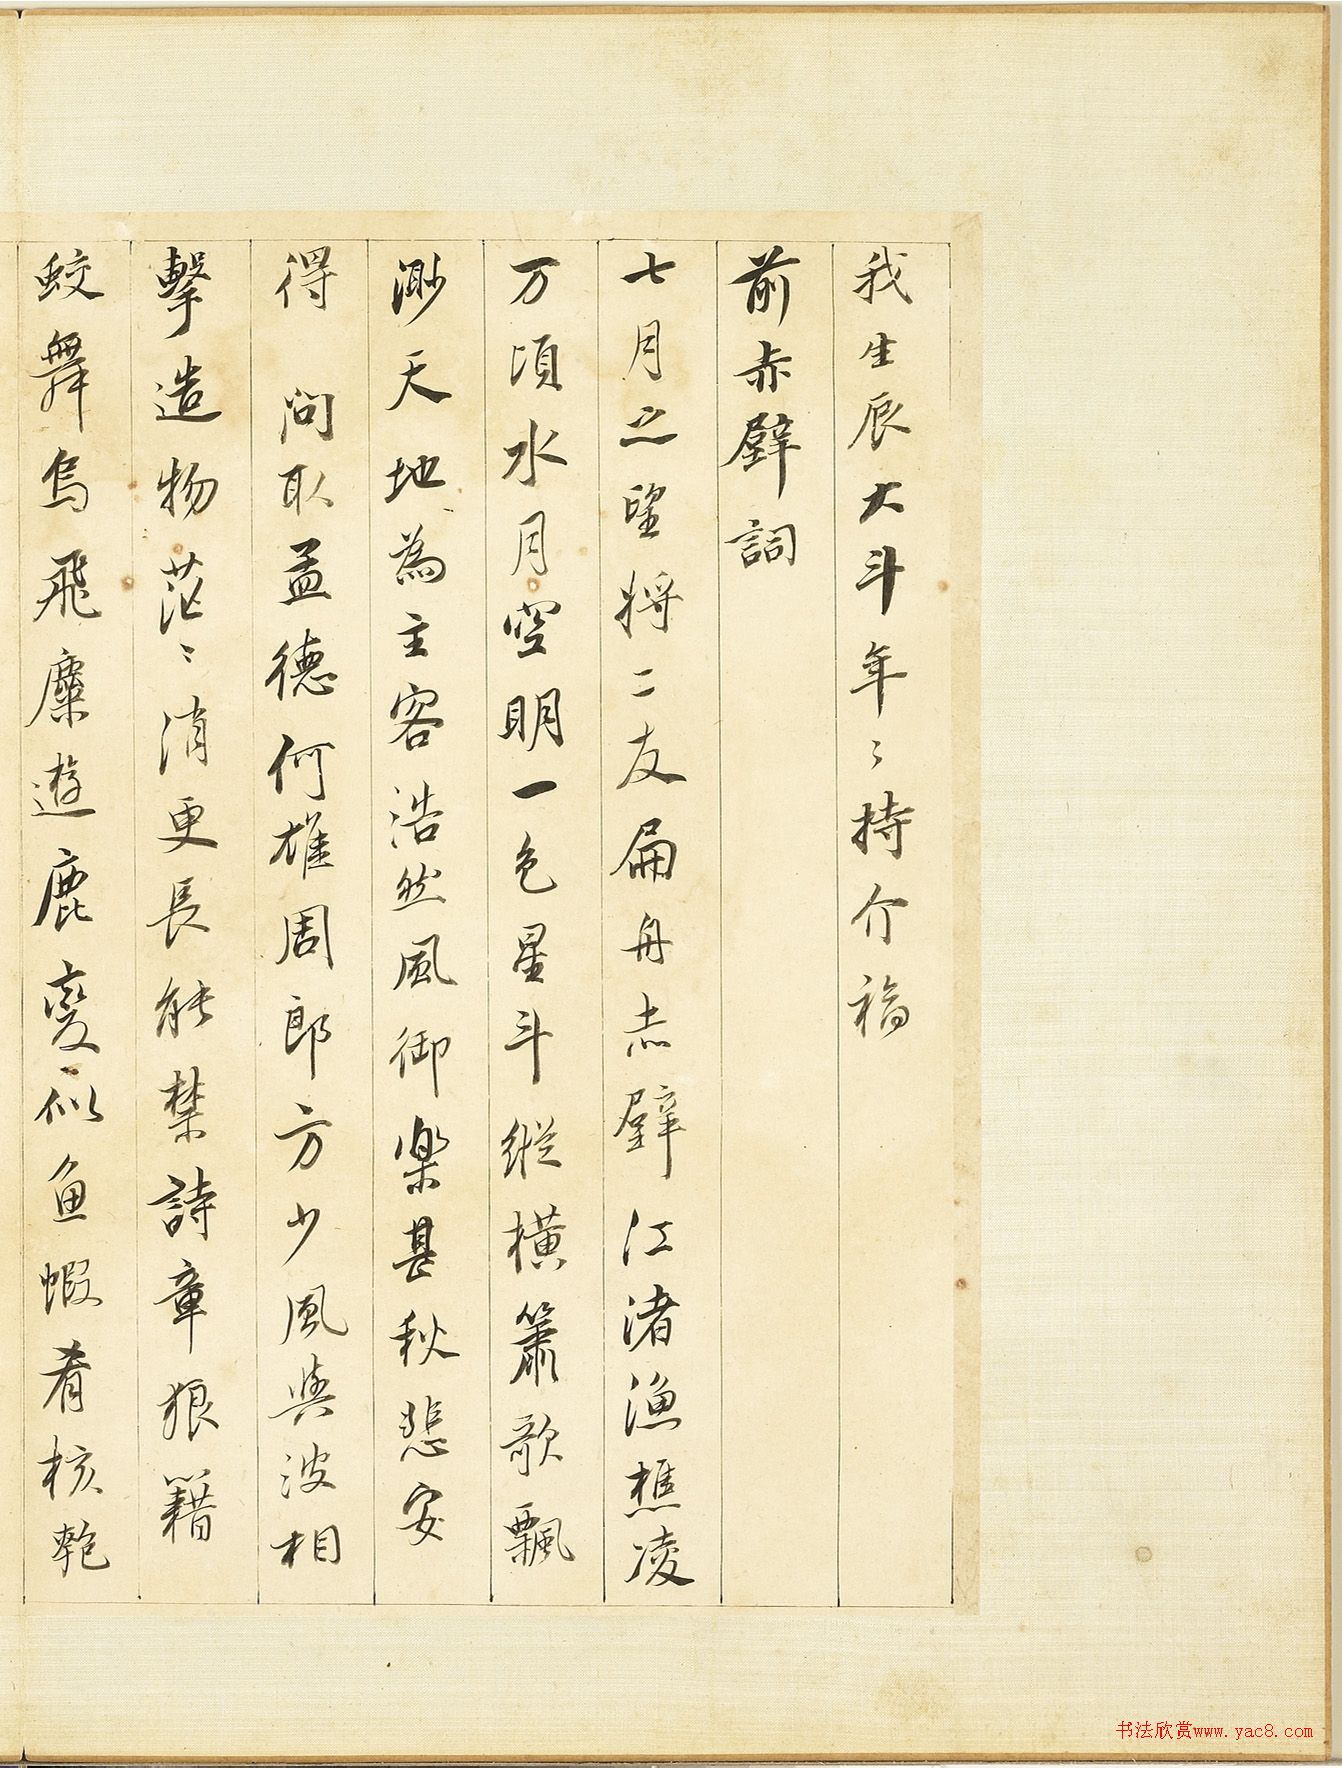 我生辰大斗年〻持介福
前赤壁詞
七月之望將二友扁舟赤壁江渚漁樵凌
万頃水月空明一色星斗縱橫簫歌飄
渺天地為主客浩然風御樂甚秋悲安
得 問取孟德何雄周郎方少風與波相
擊造物茫〻消更長能禁詩章狼籍
蛟舞烏飛麋遊鹿變似魚蝦肴核匏
书法欣赏www.yac8.com